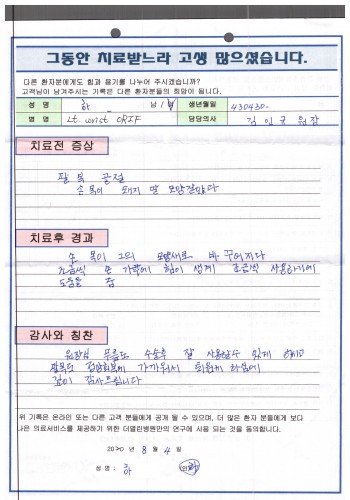 그동안 치료받느라 고생 많으셨습니다.
다른 환자분에게도 힘과 용기를 나누어 주시겠습니까?
고객님이 남겨주시는 기록은 다른 환자분들의 희망이 됩니다.
성 명 하 남 / 여 생년월일 430430-
병 명 Lt. wrist ORIF 담당의사 원장
치료전 증상
팔목 골절
손목이 돼지 발 모양같았다
치료후 경과
손목이 그의 바꾸어지다
조금씩 손가락에 힘이 생겨 조금씩 사용하기에
도움을 줌
감사와 칭찬
원장님 무릎도 수술후 잘 사용할수 있게
팔목도
깊이 감사드립니다
위 기록은 온라인 또는 다른 고객 분들에게 공개 될 수 있으며, 더 많은 환자 분들에게 보다
나은 의료서비스를 제공하기 위한 더열린병원만의 연구에 사용 되는 것을 동의합니다.
2020 년 8 월 4 일
성 명 : 하